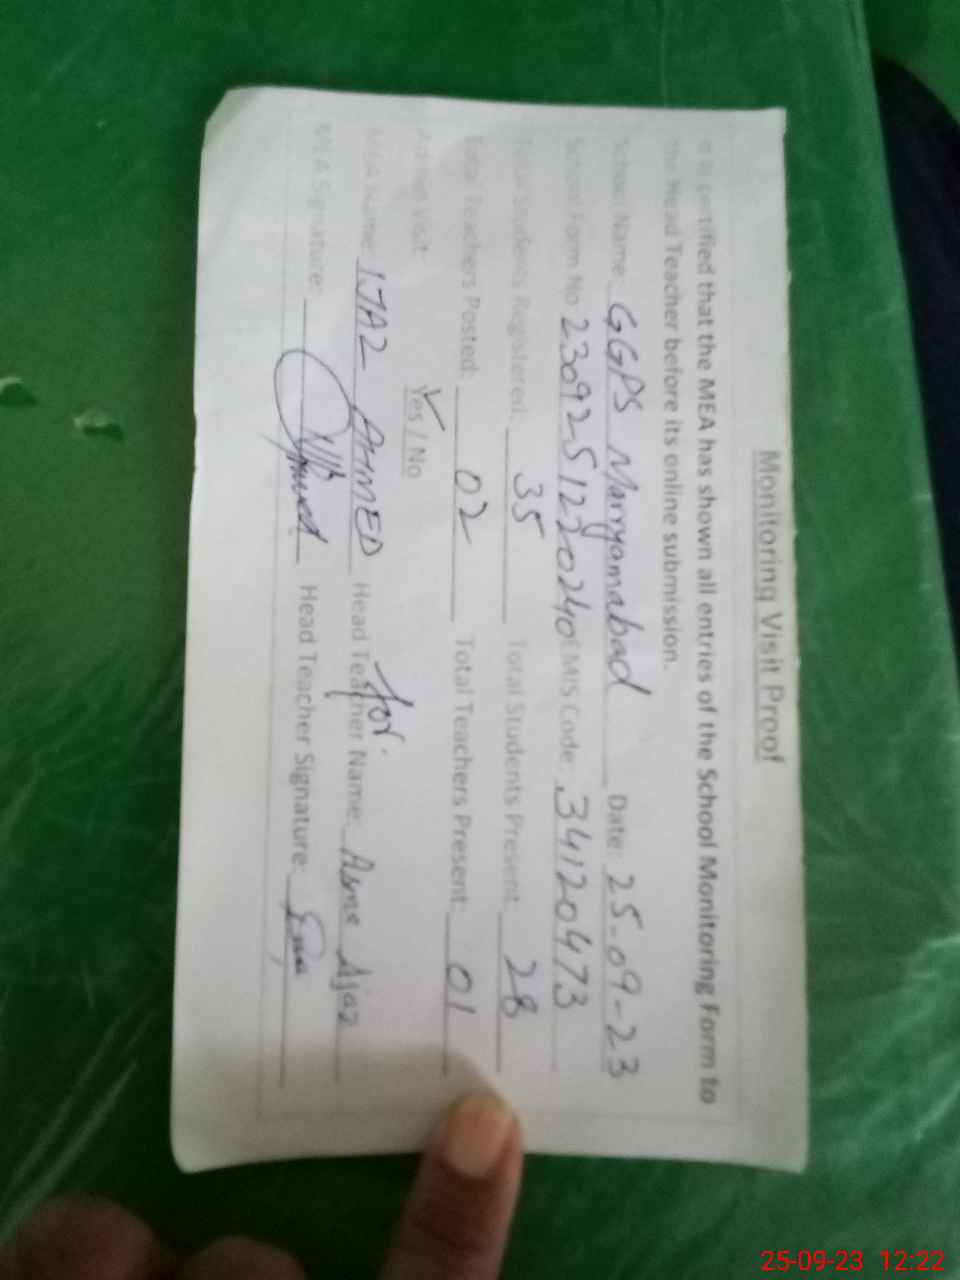 Monitoring Visit Proof
It is certified that the MEA has shown all entries of the School Monitoring Form to
the Head Teacher before its online submission.
School Name: GGPS Maryamabad Date: 25-09-23
School Form No 2309251220240 EMIS Code: 34120473
Total Students Registered: 35 Total Students Present: 28
Total Teachers Posted: 02 Total Teachers Present: 01
Visit: Yes / No
MEA Name: IJAZ AHMED Head Teacher Name: for. Asma Ajaz
MEA Signature: Head Teacher Signature:
25-09-23 12:22